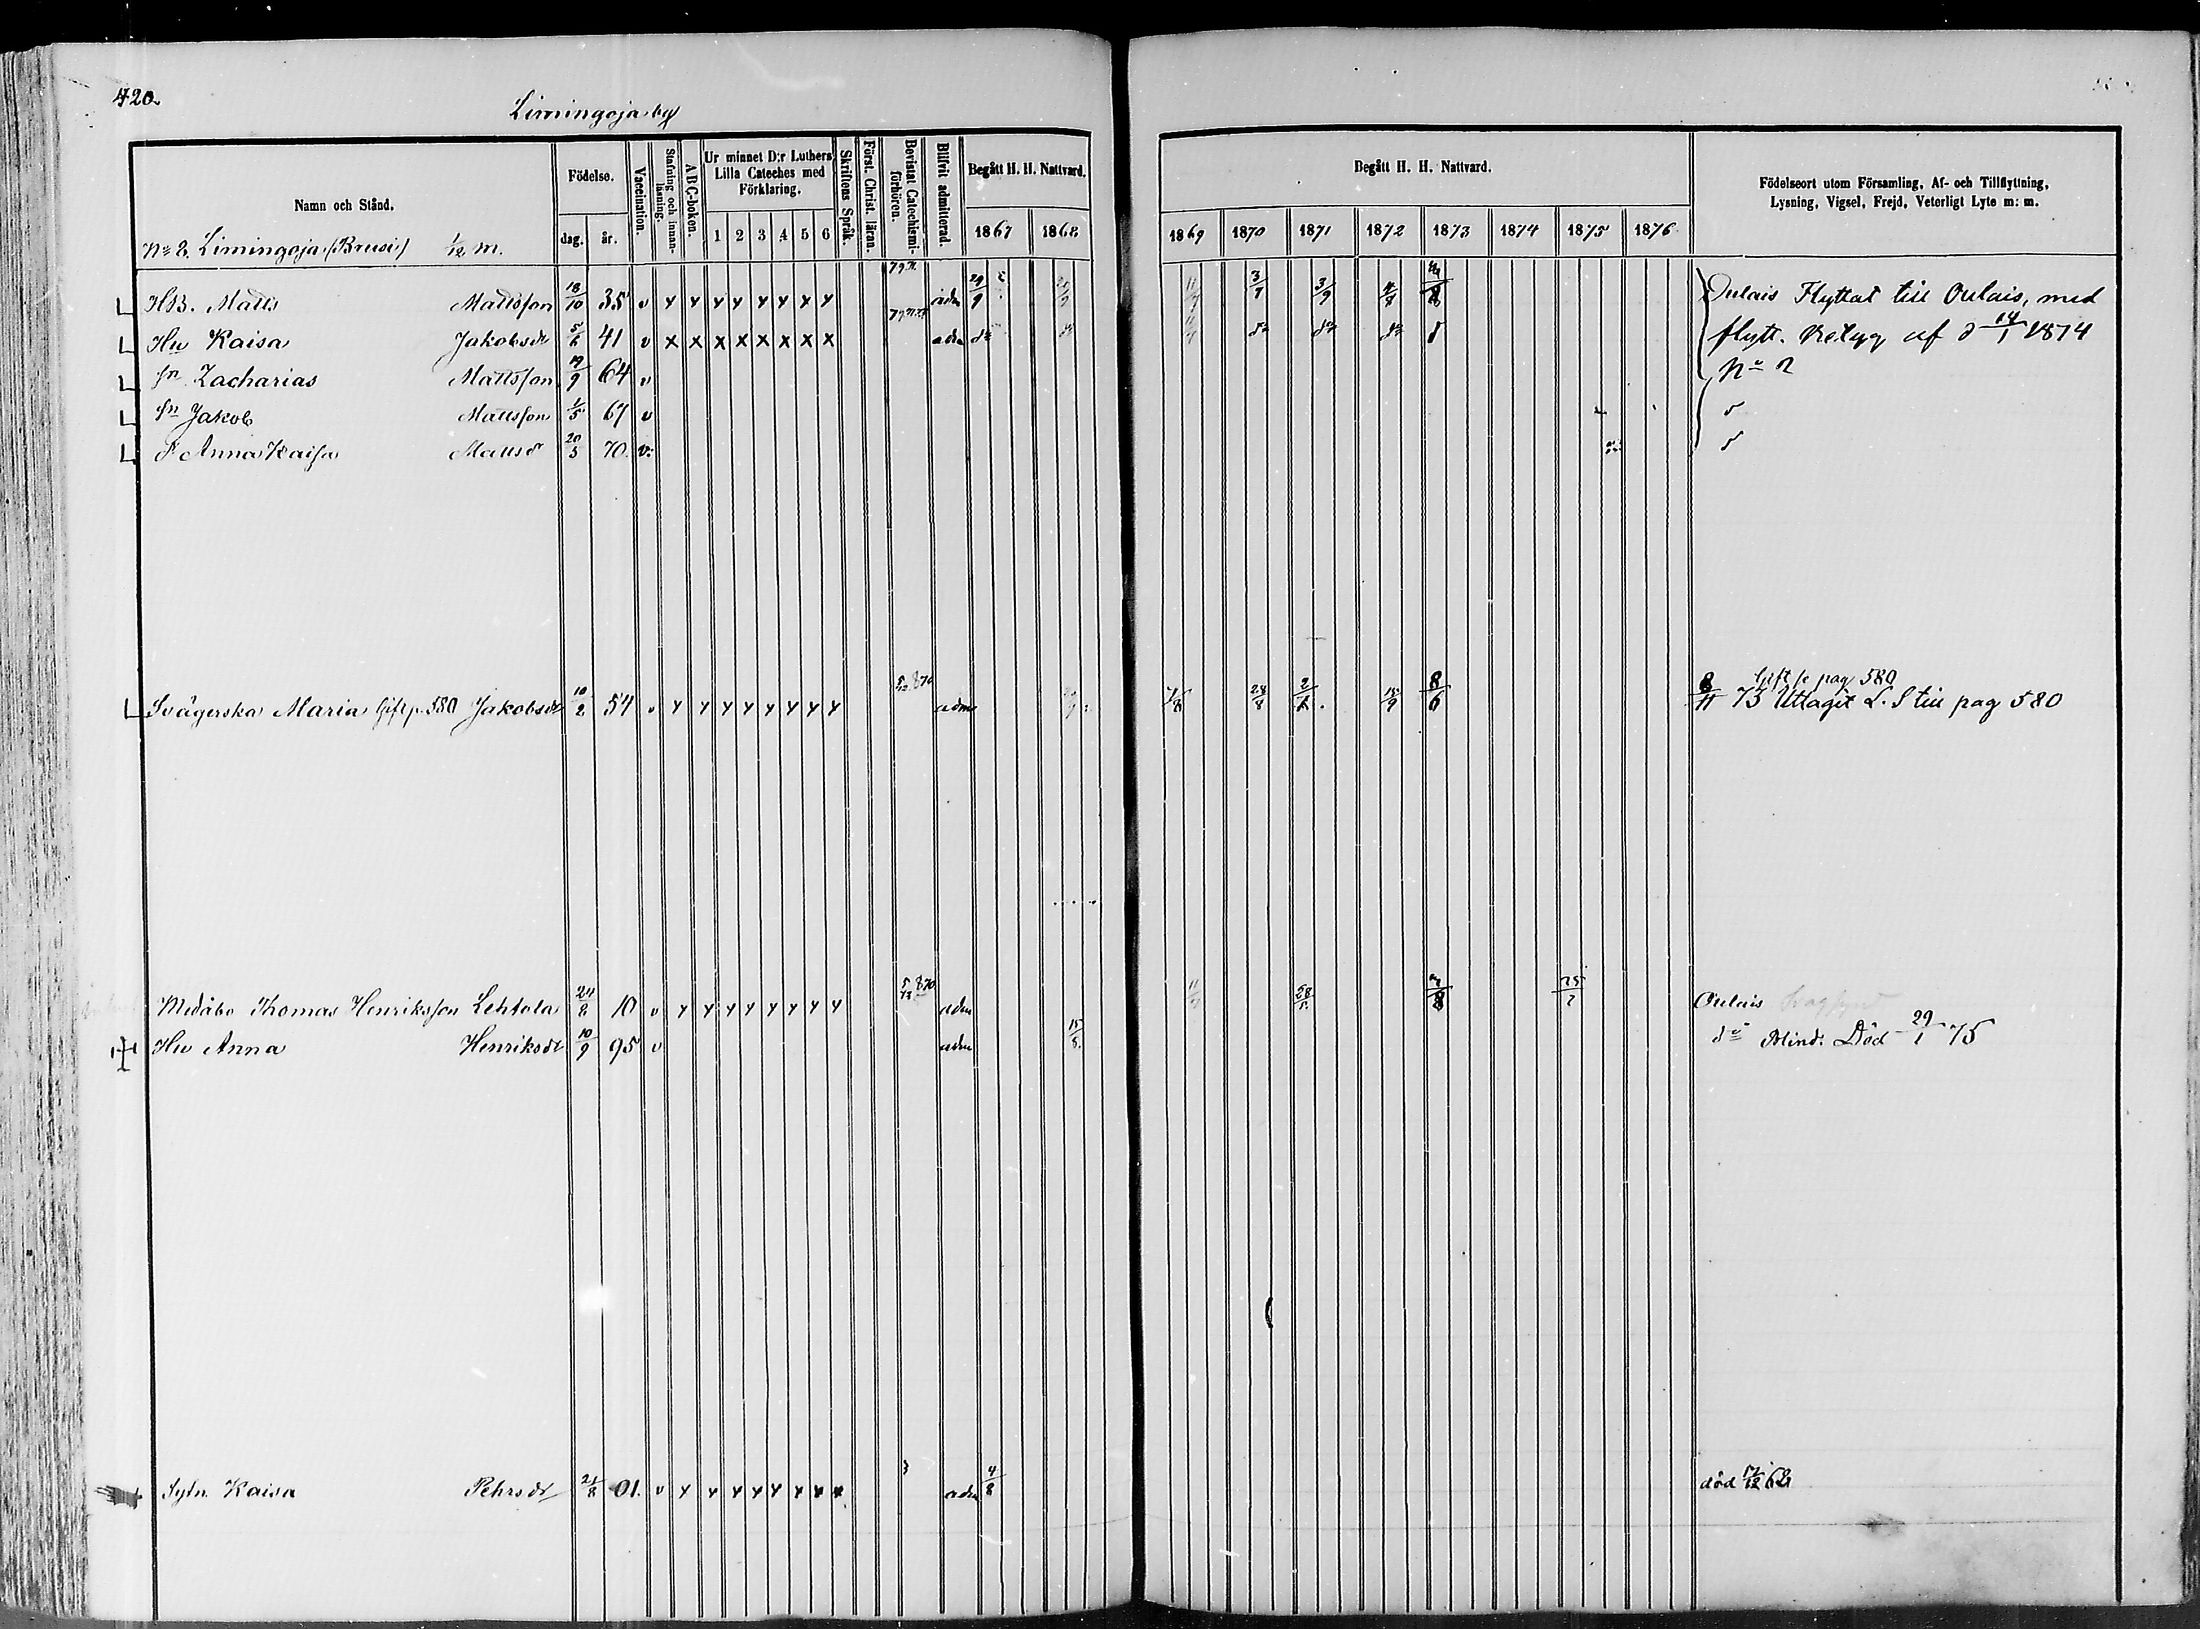 420.
Limingoja by
Namn och Stånd.
Födelse.
dag. år.
Vaccination.
Stafning och innan-läsning.
A B C-boken.
Ur minnet D:r Luthers Lilla Cateches med Förklaring.
1 2 3 4 5 6
Skriftens Språk.
Först. Christ. läran.
Bevistat Catechismi-förhören.
Blifvit admitterad.
Begått H. H. Nattvard.
1867 1868
Begått H. H. Nattvard.
1869 1870 1871 1872 1873 1874 1875 1876
Födelseort utom Församling, Af- och Tillflyttning,
Lysning, Vigsel, Frejd, Veterligt Lyte m: m.
No 8. Limingoja (Brusi) 1/12 m.
HB. Matts Mattsson 18/10 35 v x x x x x x x x adm 29/9 3/9 4/8 Oulais Flyttat till Oulais, med
Hu Kaisa Jakobsdr 5/6 41 v x x x x x x x x adm do do do do d flytt. betyg af d 14/1 1874
No 2
sn. Zacharias Mattsson 19/9 64 v
sn Jakob Mattsson 1/5 67 v d
d. Anna Kaisa Mattsdr 20/3 70. v. d
Gift se pag 580
Svägerska Maria Gift p. 580 Jakobsdr 10/2 54 v x x x x x x x x adm 28/8 8/6 8/11 73 Uttagit L. S till pag 580
Medåbo Thomas Henriksson Lehtola 24/8 10 v x x x x x x x x 870 adm 28/5 25/7 Oulais
Hu Anna Henriksdr 10/9 95 v adm 15/5. do Blind. Död 29/1 75
Sytn. Kaisa Pehrsdr 21/8 01. v x x x x x x x x adm 4/8 död 17/12 68